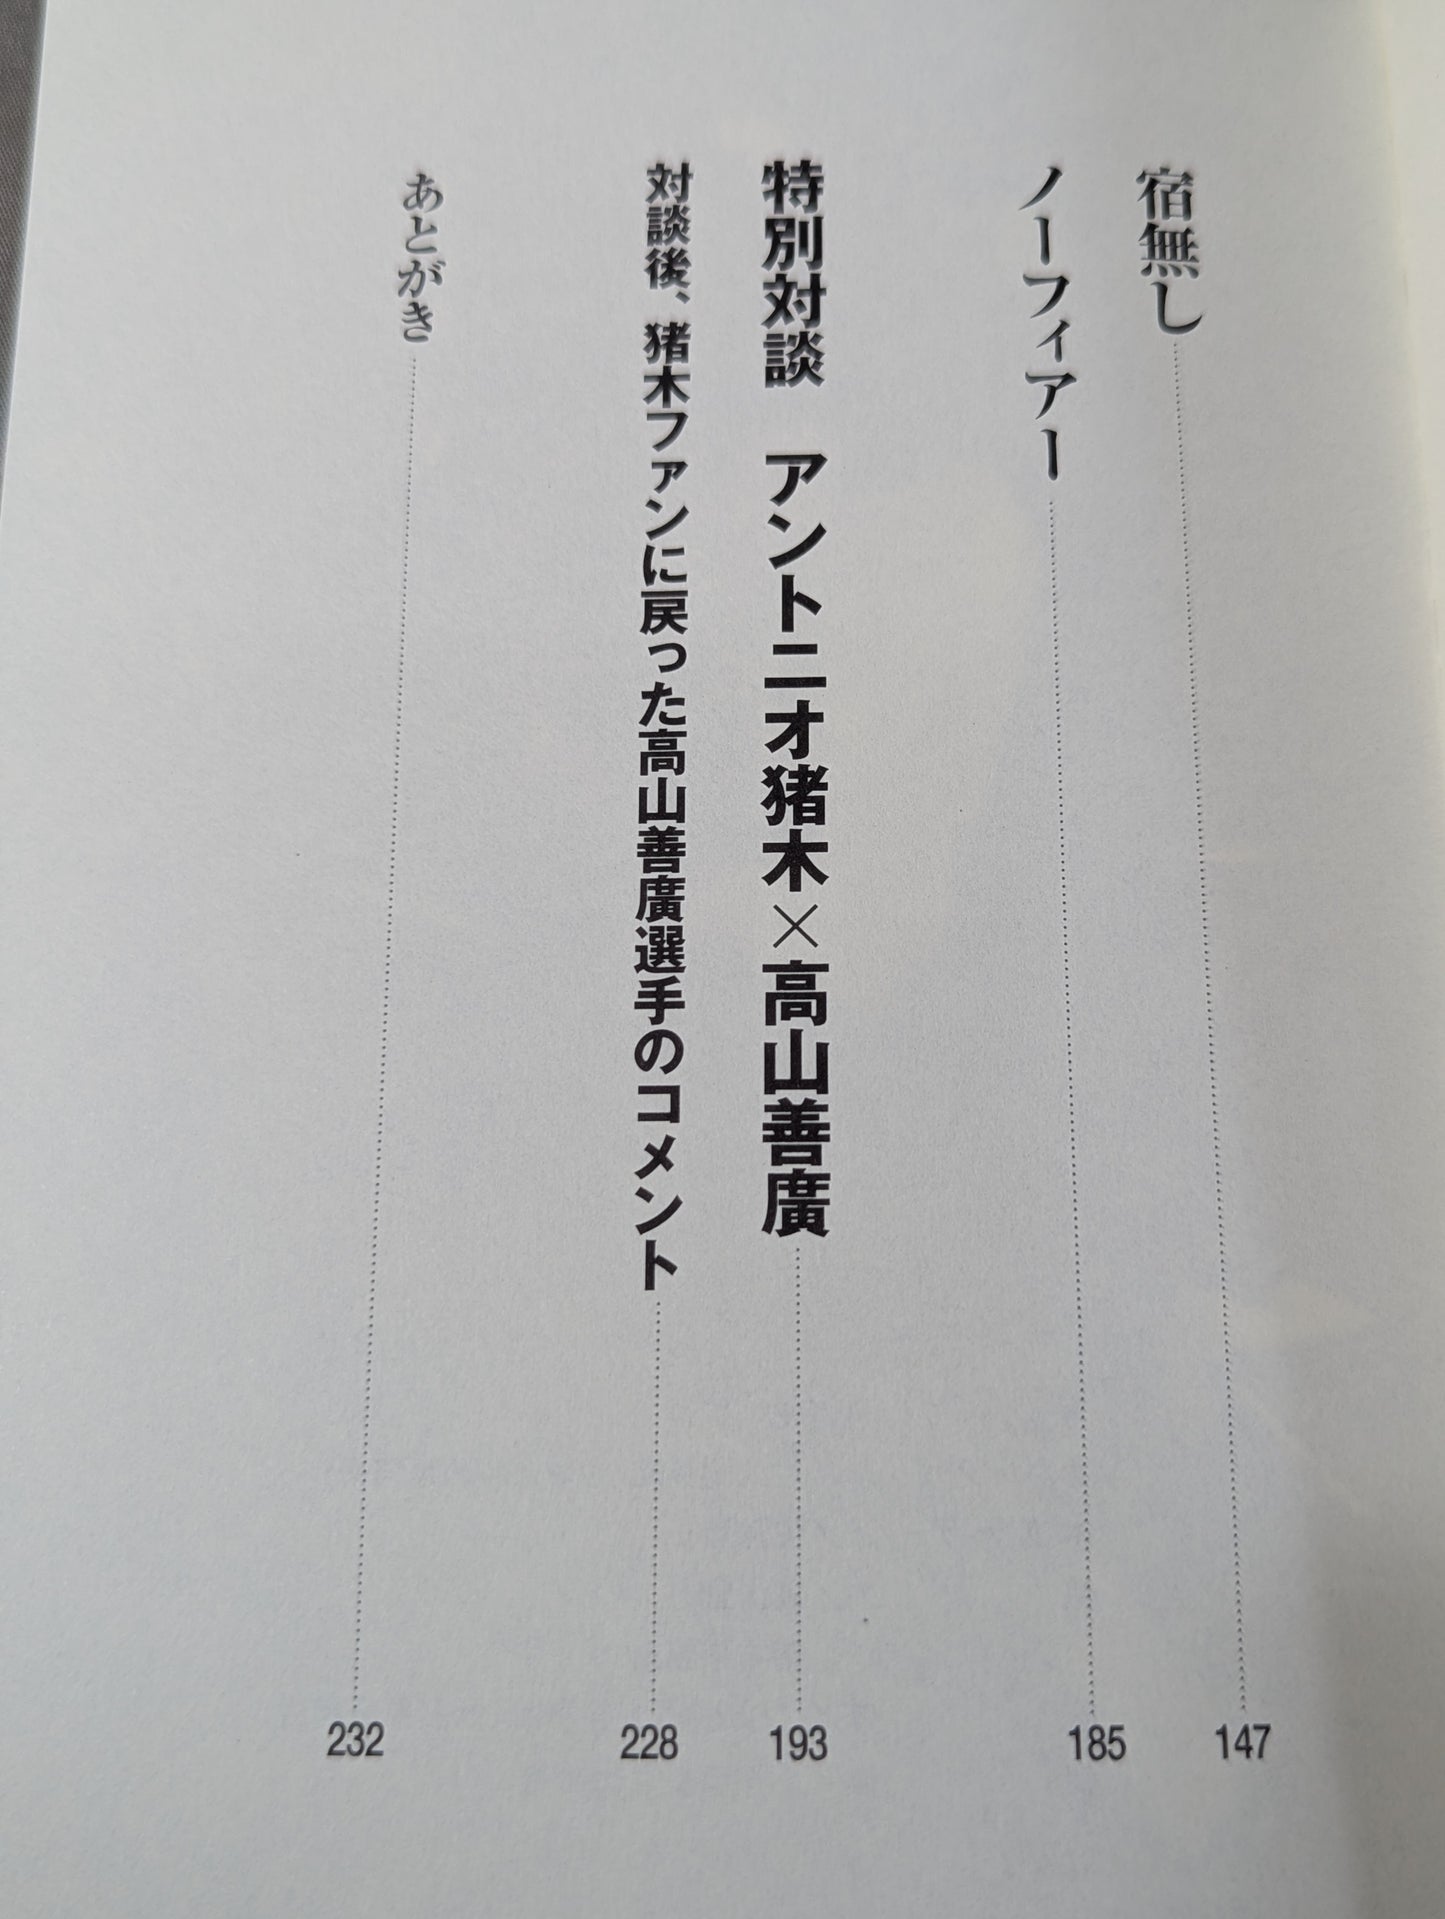 宿無し……147
ノーフィアー……185
特別対談　アントニオ猪木×高山善廣……193
対談後、猪木ファンに戻った高山善廣選手のコメント……228
あとがき……232